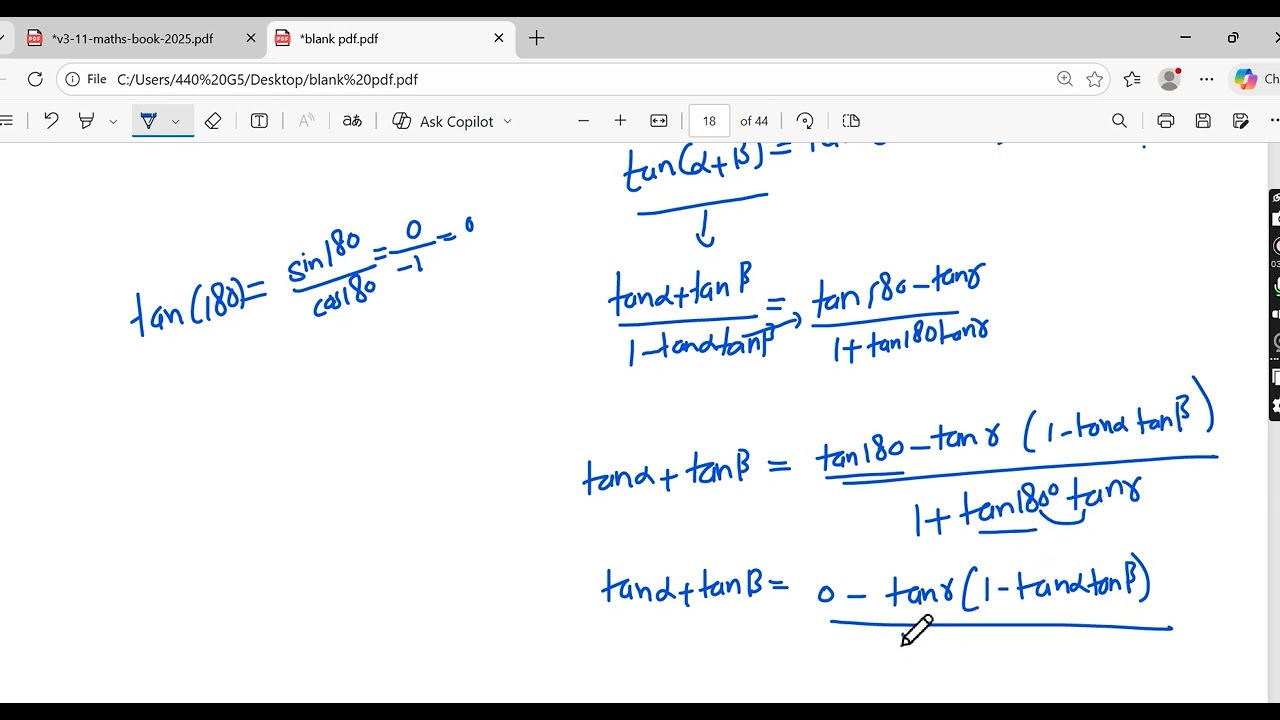 *v3-11-maths-book-2025.pdf
*blank pdf.pdf
File C:/Users/440%20G5/Desktop/blank%20pdf.pdf
Ask Copilot
18 of 44
tan(α+β)=
tan(180)= sin180/cos180 = 0/-1 = 0
(tanα+tanβ)/(1-tanαtanβ) = (tan180-tanγ)/(1+tan180tanγ)
tanα+tanβ = (tan180-tanγ (1-tanα tanβ))/(1+tan180° tanγ)
tanα+tanβ = 0 - tanγ(1-tanαtanβ)